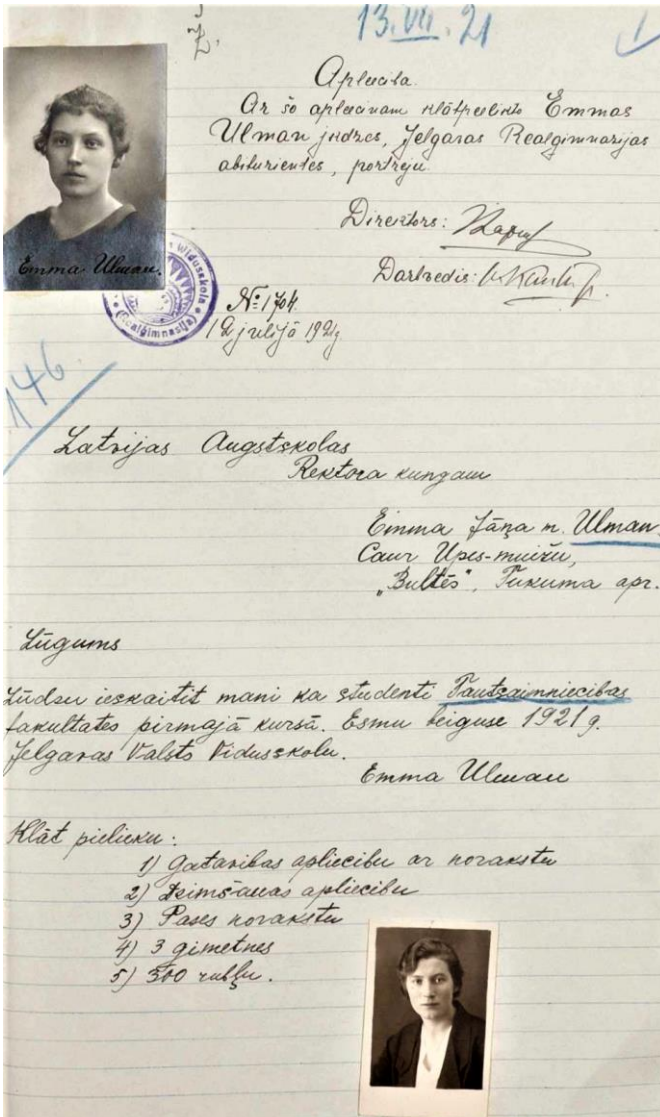 13.VII.21
Apliecība.
Ar šo apliecinam klātpielikto Emmas
Ulman jkdzes, Jelgavas Realgimnazijas
abiturientes, portreju
Direktors:
Darbvedis:
Emma Ulman.
Widusskola
(Realģimnasija)
№ 1704.
12 julijā 1921g
146
Latvijas Augstskolas
Rektora kungam
Emma Jāņa m. Ulman.
Caur Upes-muižu,
„Bultēs", Tukuma apr.
Lūgums
Lūdzu ieskaitit mani ka studenti Tautsaimniecibas
fakultates pirmajā kursā. Esmu beiguse 1921 g.
Jelgavas Valsts Vidusskolu.
Emma Ulman
Klāt pielieku:
1) Gatavibas apliecibu ar norakstu
2) Dzimšanas apliecibu
3) Pases norakstu
4) 3 ģimetnes
5) 500 rubļu.